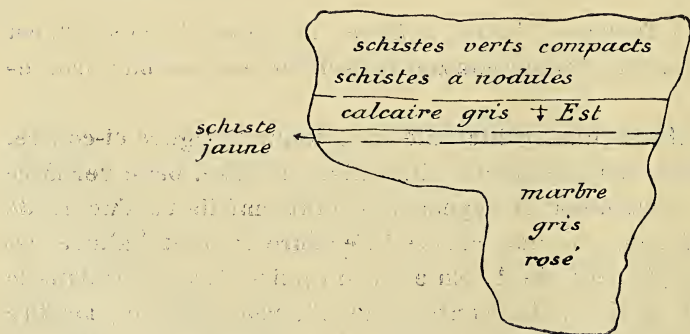 schistes verts compacts
schistes à nodules
calcaire gris ↧ Est
schiste
jaune
marbre
gris
rosé